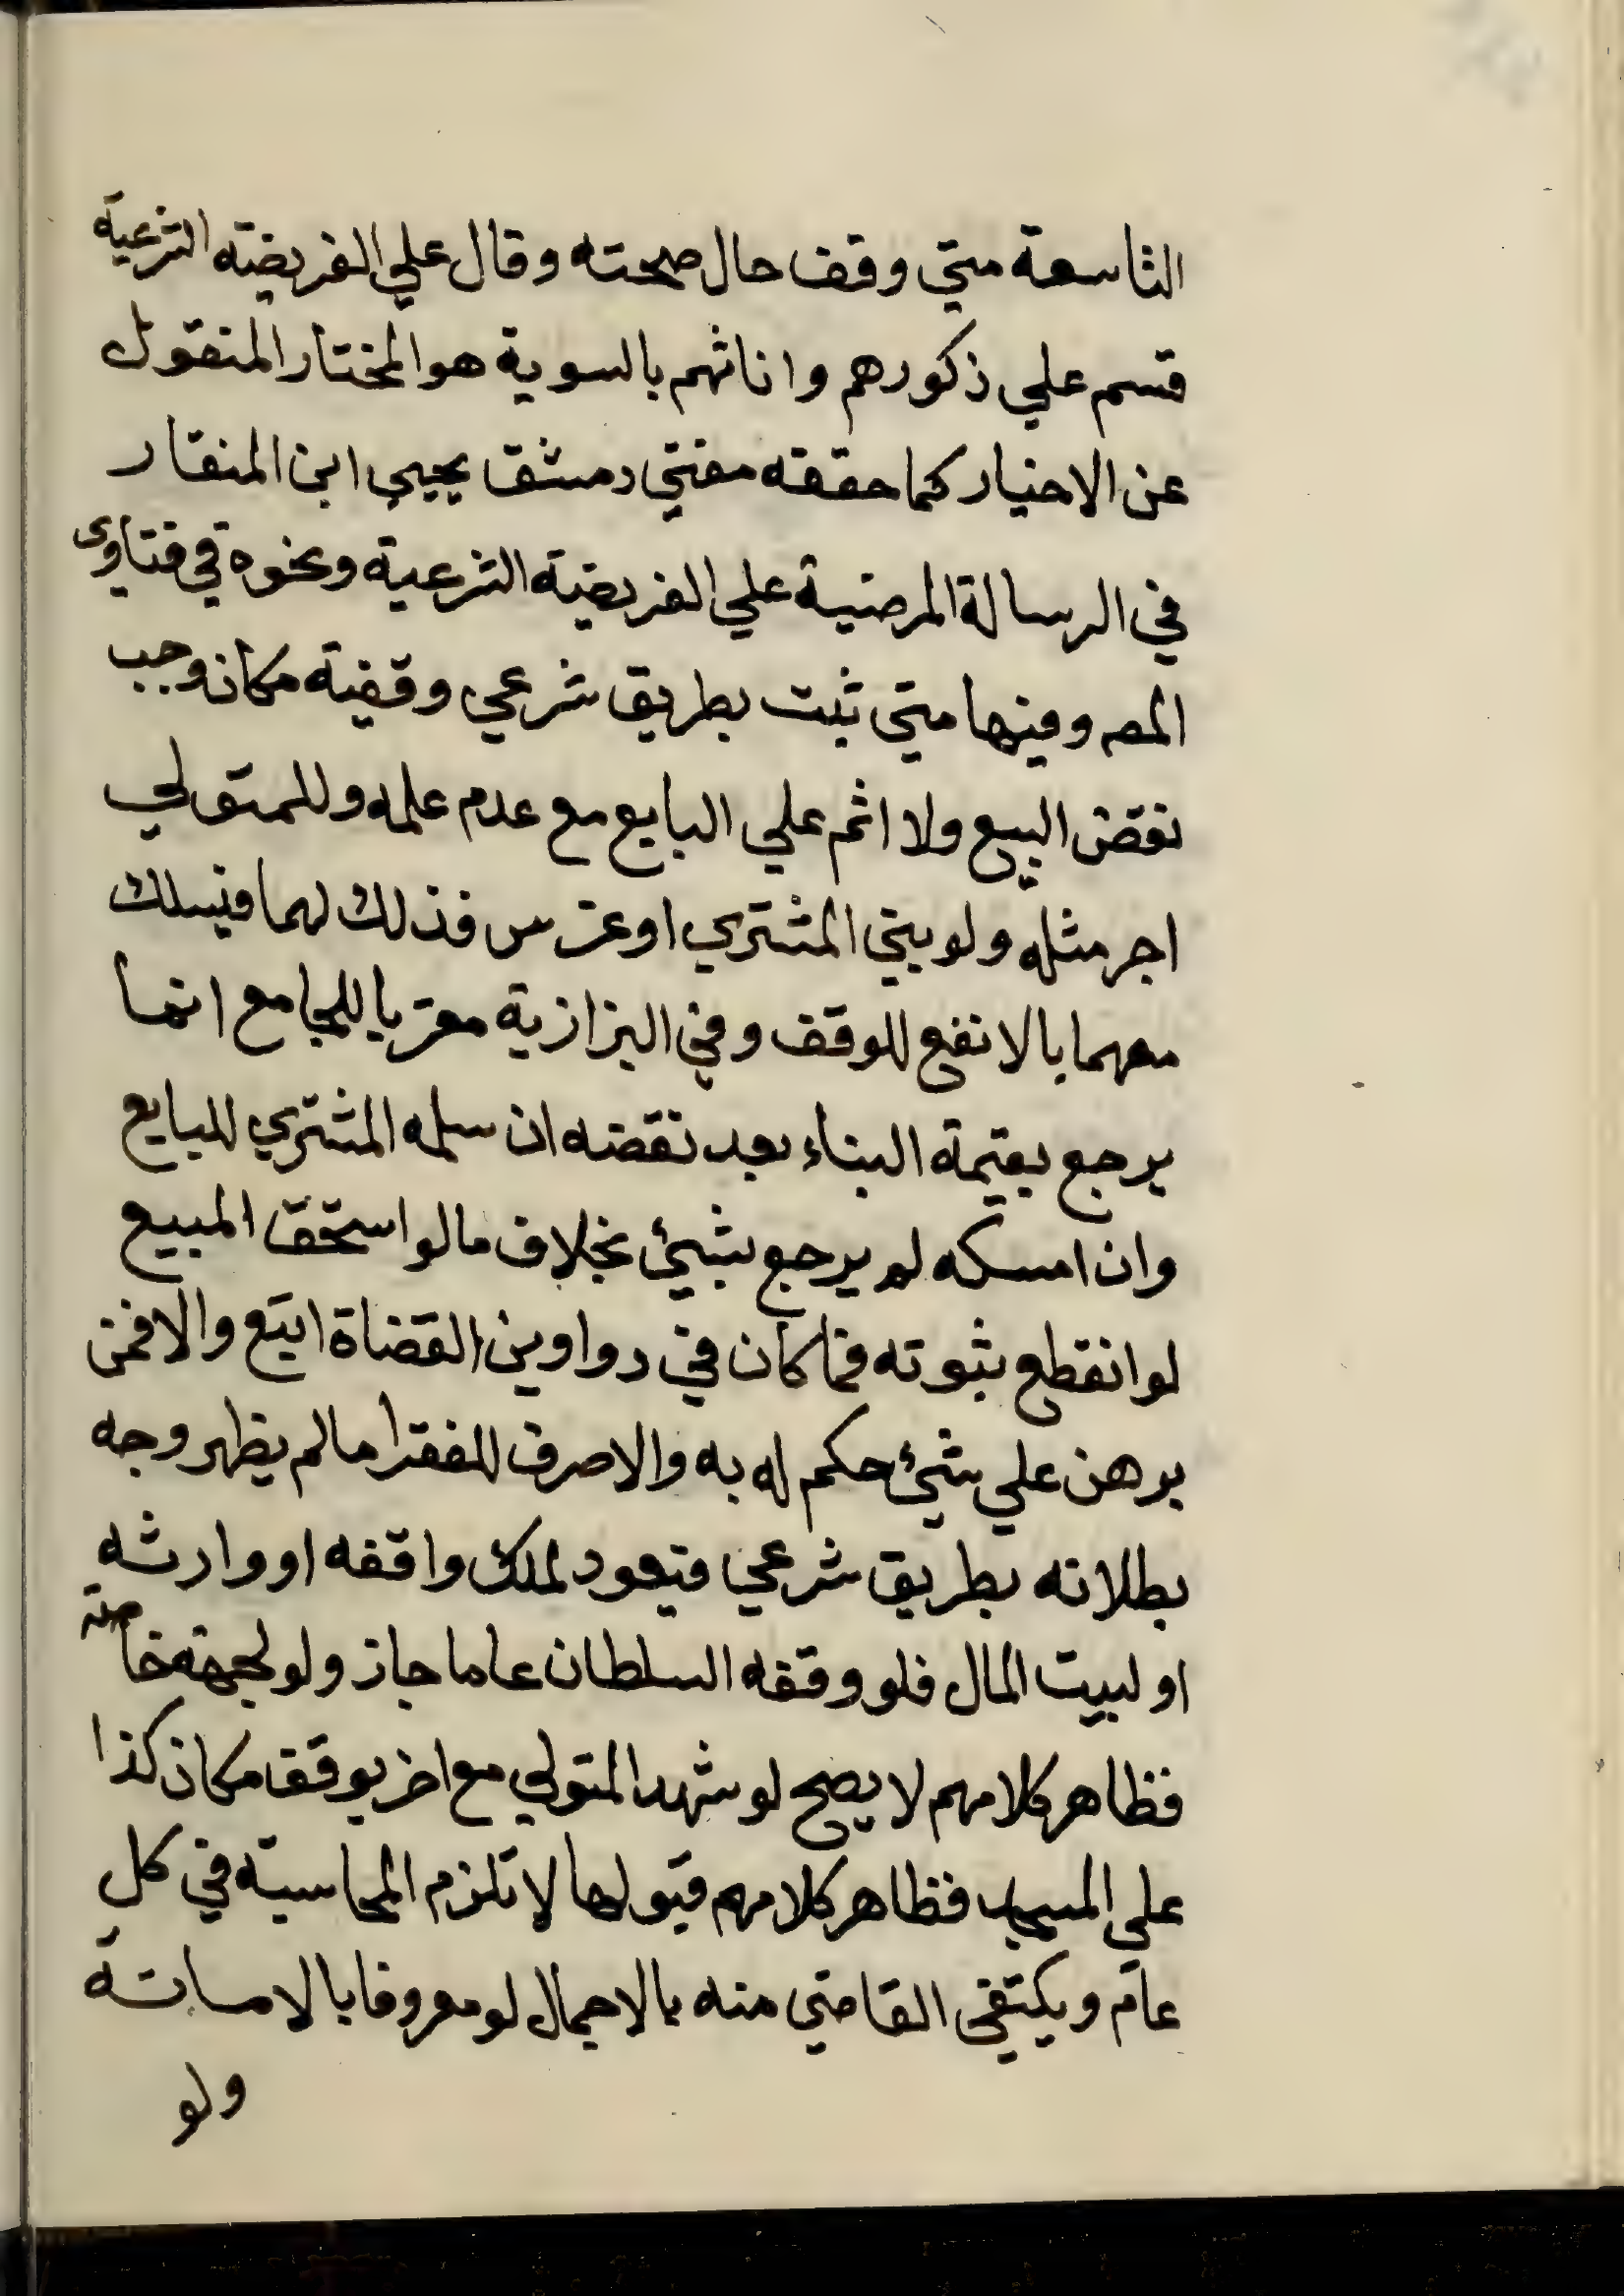 التاسعة متي وقف حال صحته وقال علي الفريضة الشرعية
قسم علي ذكورهم واناثهم بالسوية هو المختار المنقول
عن الاخيار كما حققه مفتي دمشق يحيي ابن المنقار
في الرسالة المرضية علي الفريضة الشرعية ونحوه في فتاوى
المصـ وفيها متي ثبت بطريق شرعي وقفية مكان وجب
نقض البيع ولا اثم علي البايع مع عدم علمه وللمتولي
اجر مثله ولو بني المشتري او غرس فذلك لهما فيسلك
معهما بالانفع للوقف وفي البزازية معزيا للجامع انما
يرجع بقيمة البناء بعد نقضه ان سلمه المشتري للبايع
وان امسكه لم يرجع بشيئ بخلاف ما لو استحق المبيع
لو انقطع ثبوته فما كان في دواوين القضاة اتبع والا فمن
برهن علي شيئ حكم له به والا صرف للفقرا ما لم يظهر وجه
بطلانه بطريق شرعي فيعود لملك واقفه او وارثه
او لبيت المال فلو وقفه السلطان عاما جاز ولو لجهة خاصة
فظاهر كلامهم لا يصح لو شهد المتولي مع اخر بوقف مكان كذا
علي المسجد فظاهر كلامهم قبولها لا تلزم المحاسبة في كل
عام ويكتفي القاضي منه بالاجمال لو معروفا بالامانة
ولو